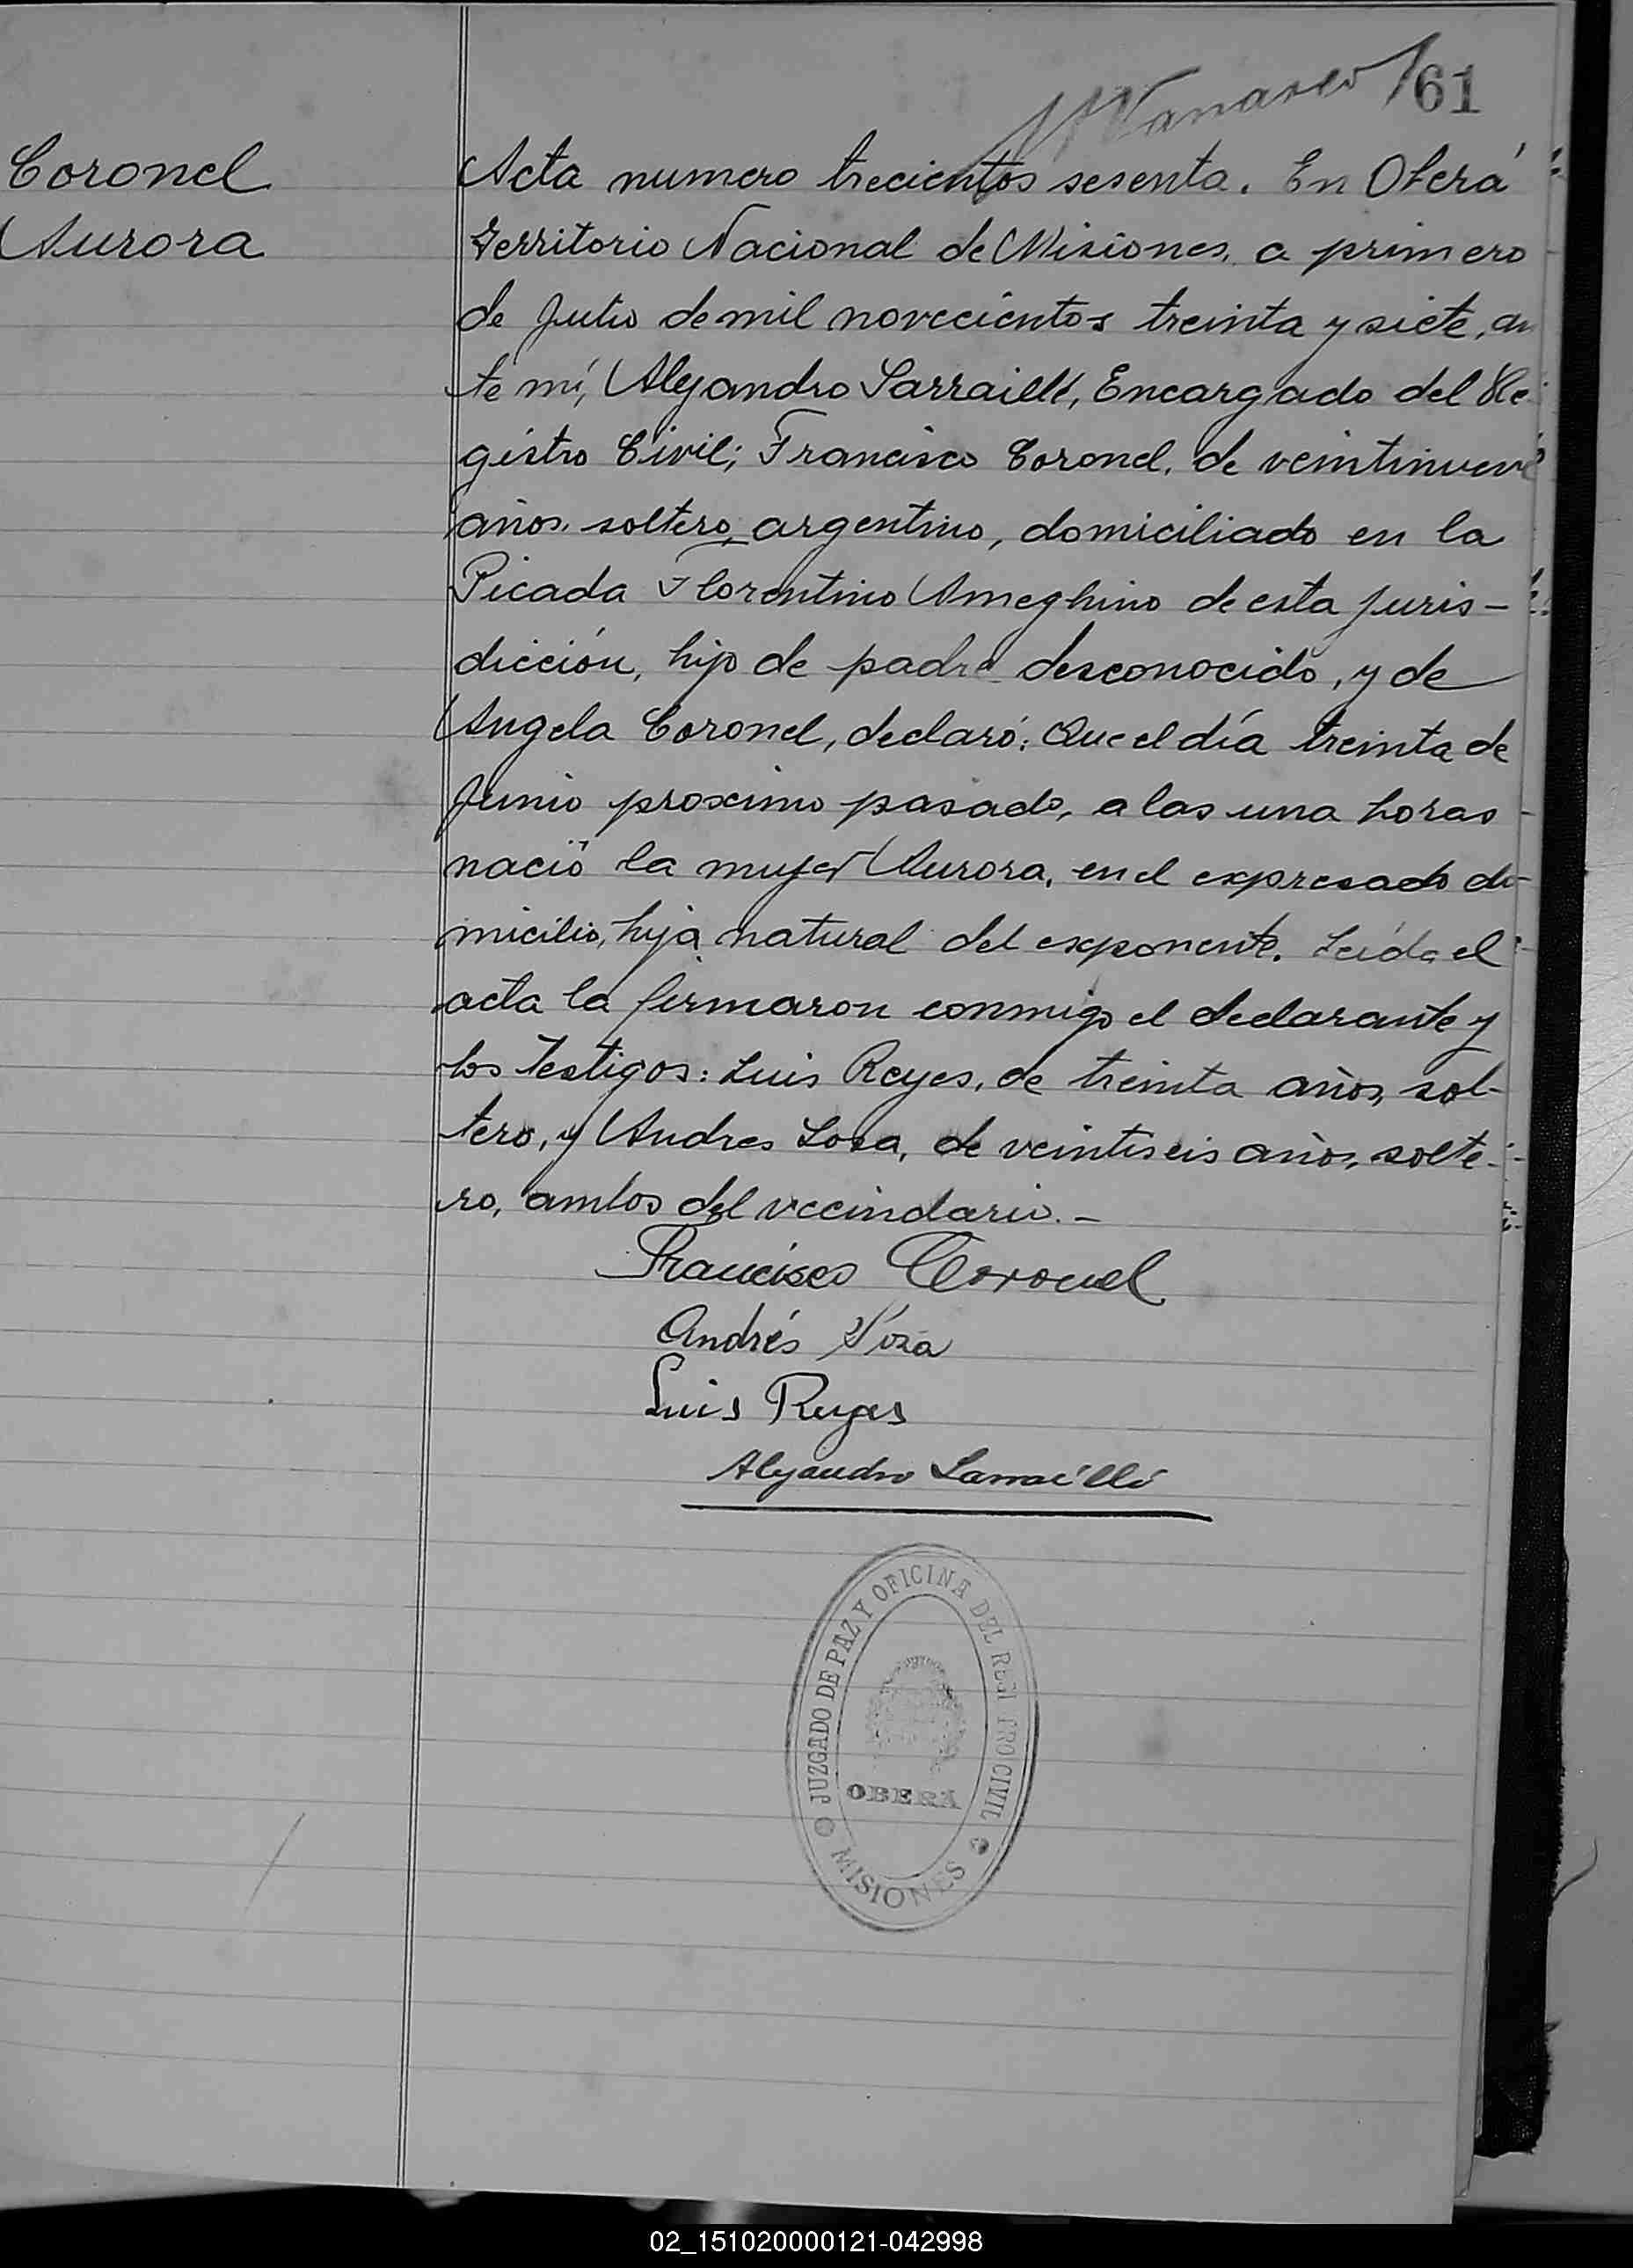 61
Coronel
Aurora
Acta numero trecientos sesenta. En Oberá
Territorio Nacional de Misiones, a primero
de Julio de mil novecientos treinta y siete, an
te mí, Alejandro Sarraillé, Encargado del Re
gistro Civil; Francisco Coronel, de veintinueve
años, soltero, argentino, domiciliado en la
Picada Florentino Ameghino de esta juris-
dicción, hijo de padre desconocido, y de
Angela Coronel, declaró: Que el día treinta de
Junio proximo pasado, a las una horas
nació la mujer Aurora, en el expresado do-
micilio, hija natural del exponente. Leída el
acta la firmaron conmigo el declarante y
los testigos: Luis Reyes, de treinta años, sol-
tero, y Andres Sosa, de veintiseis años, solte-
ro, ambos del vecindario.-
Francisco Coronel
Andrés Sosa
Luis Reyes
Alejandro Sarraillé
JUZGADO DE PAZ Y OFICINA DEL REGISTRO CIVIL
OBERA
MISIONES
02_151020000121-042998